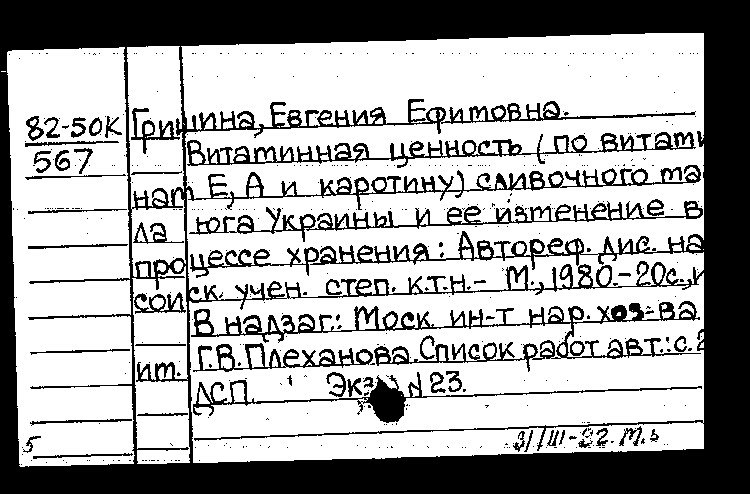 82-50К Гришина, Евгения Ефимовна.
567 Витаминная ценность (по витами
нам Е, А и каротину) сливочного ма
ла юга Украины и ее изменение в
процессе хранения: Автореф. дис. на
соиск. учен. степ. к.т.н. - М., 1980. - 20с.,
В надзаг.: Моск. ин-т нар. хоз-ва
им. Г.В. Плеханова. Список работ авт.: с. 2
ДСП. Экз. N 23.
5 31/III-82. М.